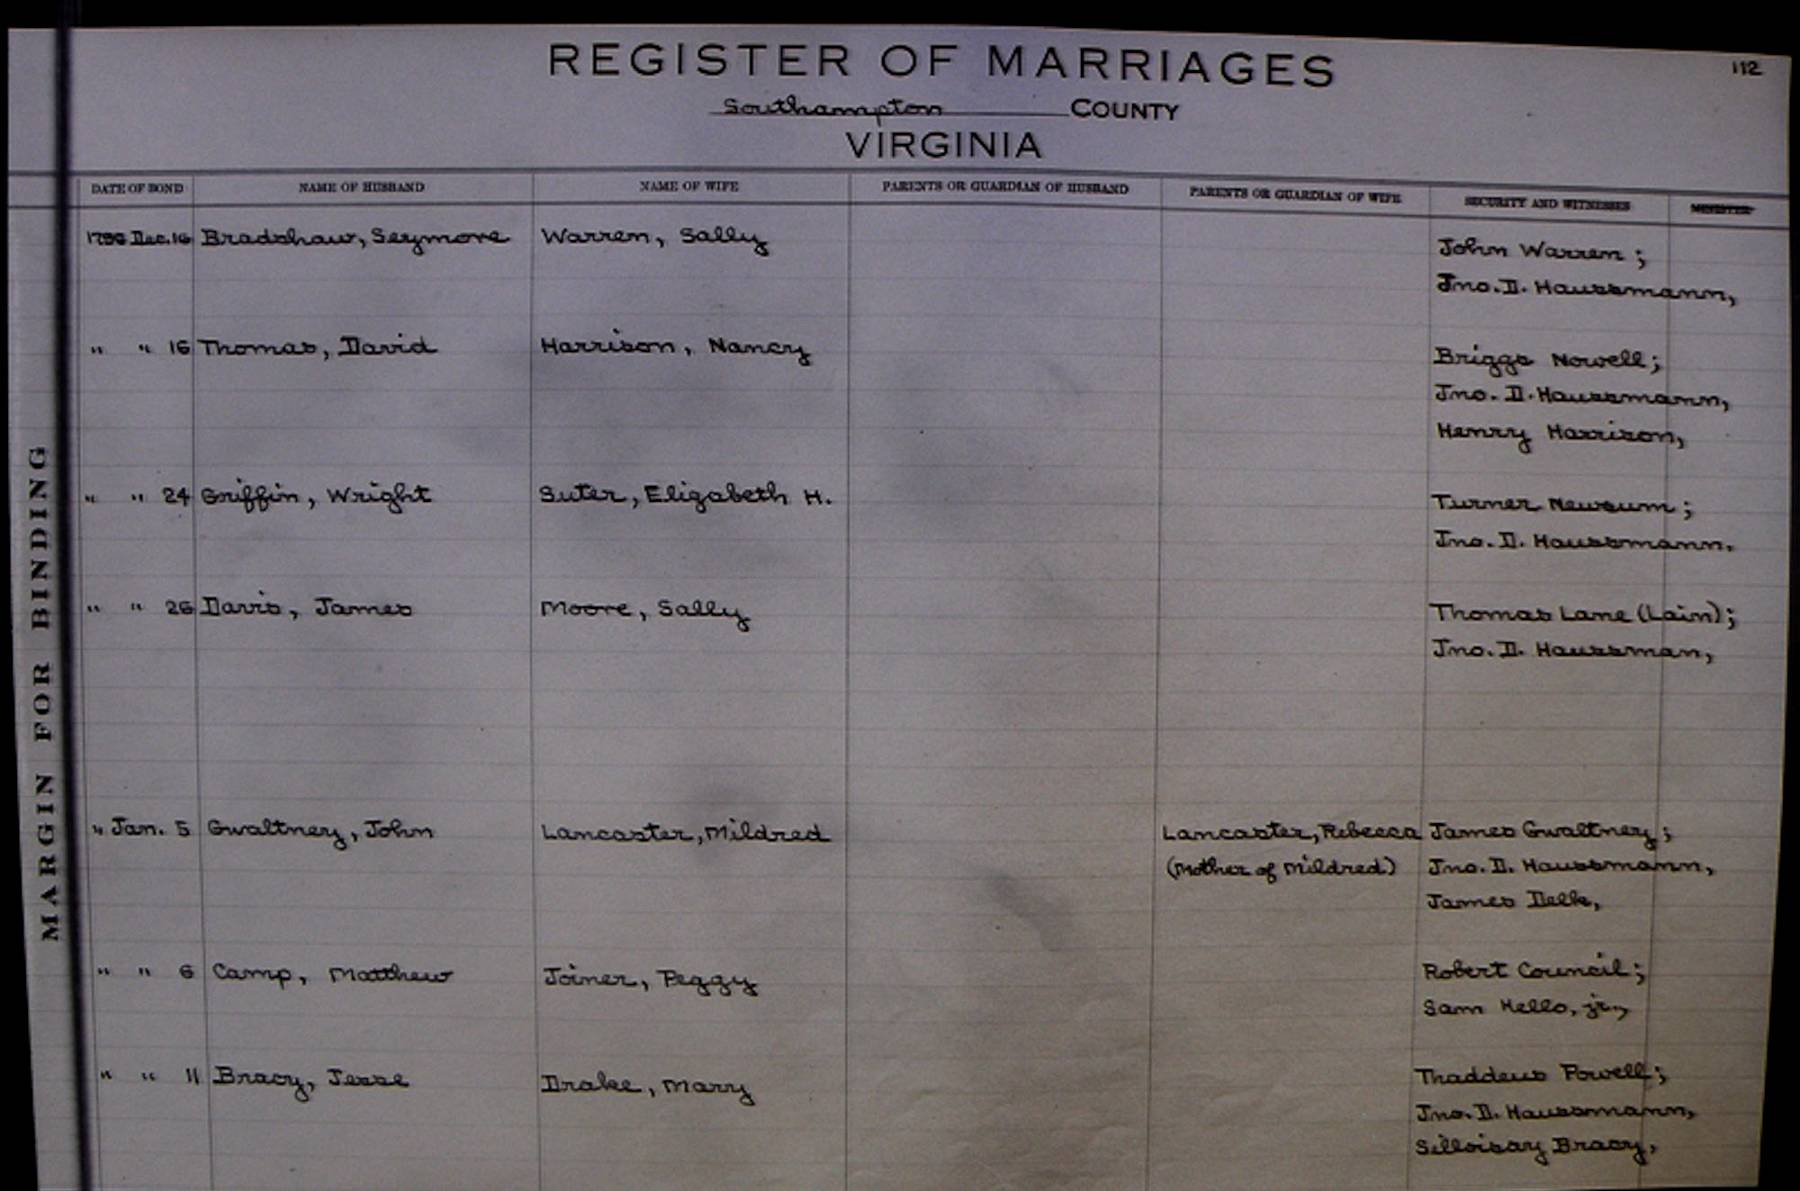 112
REGISTER OF MARRIAGES
Southampton COUNTY
VIRGINIA
DATE OF BOND NAME OF HUSBAND NAME OF WIFE PARENTS OR GUARDIAN OF HUSBAND PARENTS OR GUARDIAN OF WIFE SECURITY AND WITNESSES MINISTER
Dec. 16 Bradshaw, Seymore Warren, Sally John Warren;
Jno. D. Haussmann,
" " 16 Thomas, David Harrison, Nancy Briggs Nowell;
Jno. D. Haussmann,
Henry Harrison,
" " 24 Griffin, Wright Suter, Elizabeth H. Turner Newsum;
Jno. D. Haussmann.
" " 26 Davis, James Moore, Sally Thomas Lane (Lain);
Jno. D. Haussman,
" Jan. 5 Gwaltney, John Lancaster, Mildred Lancaster, Rebecca James Gwaltney;
(Mother of Mildred) Jno. D. Haussmann,
James Delk,
" " 6 Camp, Matthew Joiner, Peggy Robert Council;
Sam Kello, jr.,
" " 11 Bracy, Jesse Drake, Mary Thaddeus Powell;
Jno. D. Haussmann,
Silloisay Bracy,
MARGIN FOR BINDING